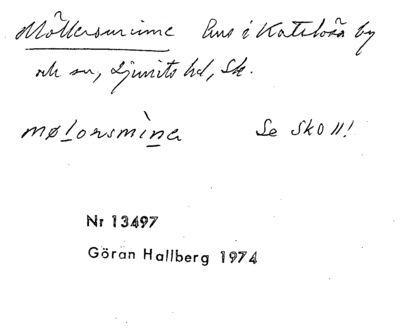 Möllersminne hus i Katslösa by
och sn, Ljunits hd, Sk.
mølorsmìna Se SkO II!
Nr 13497
Göran Hallberg 1974